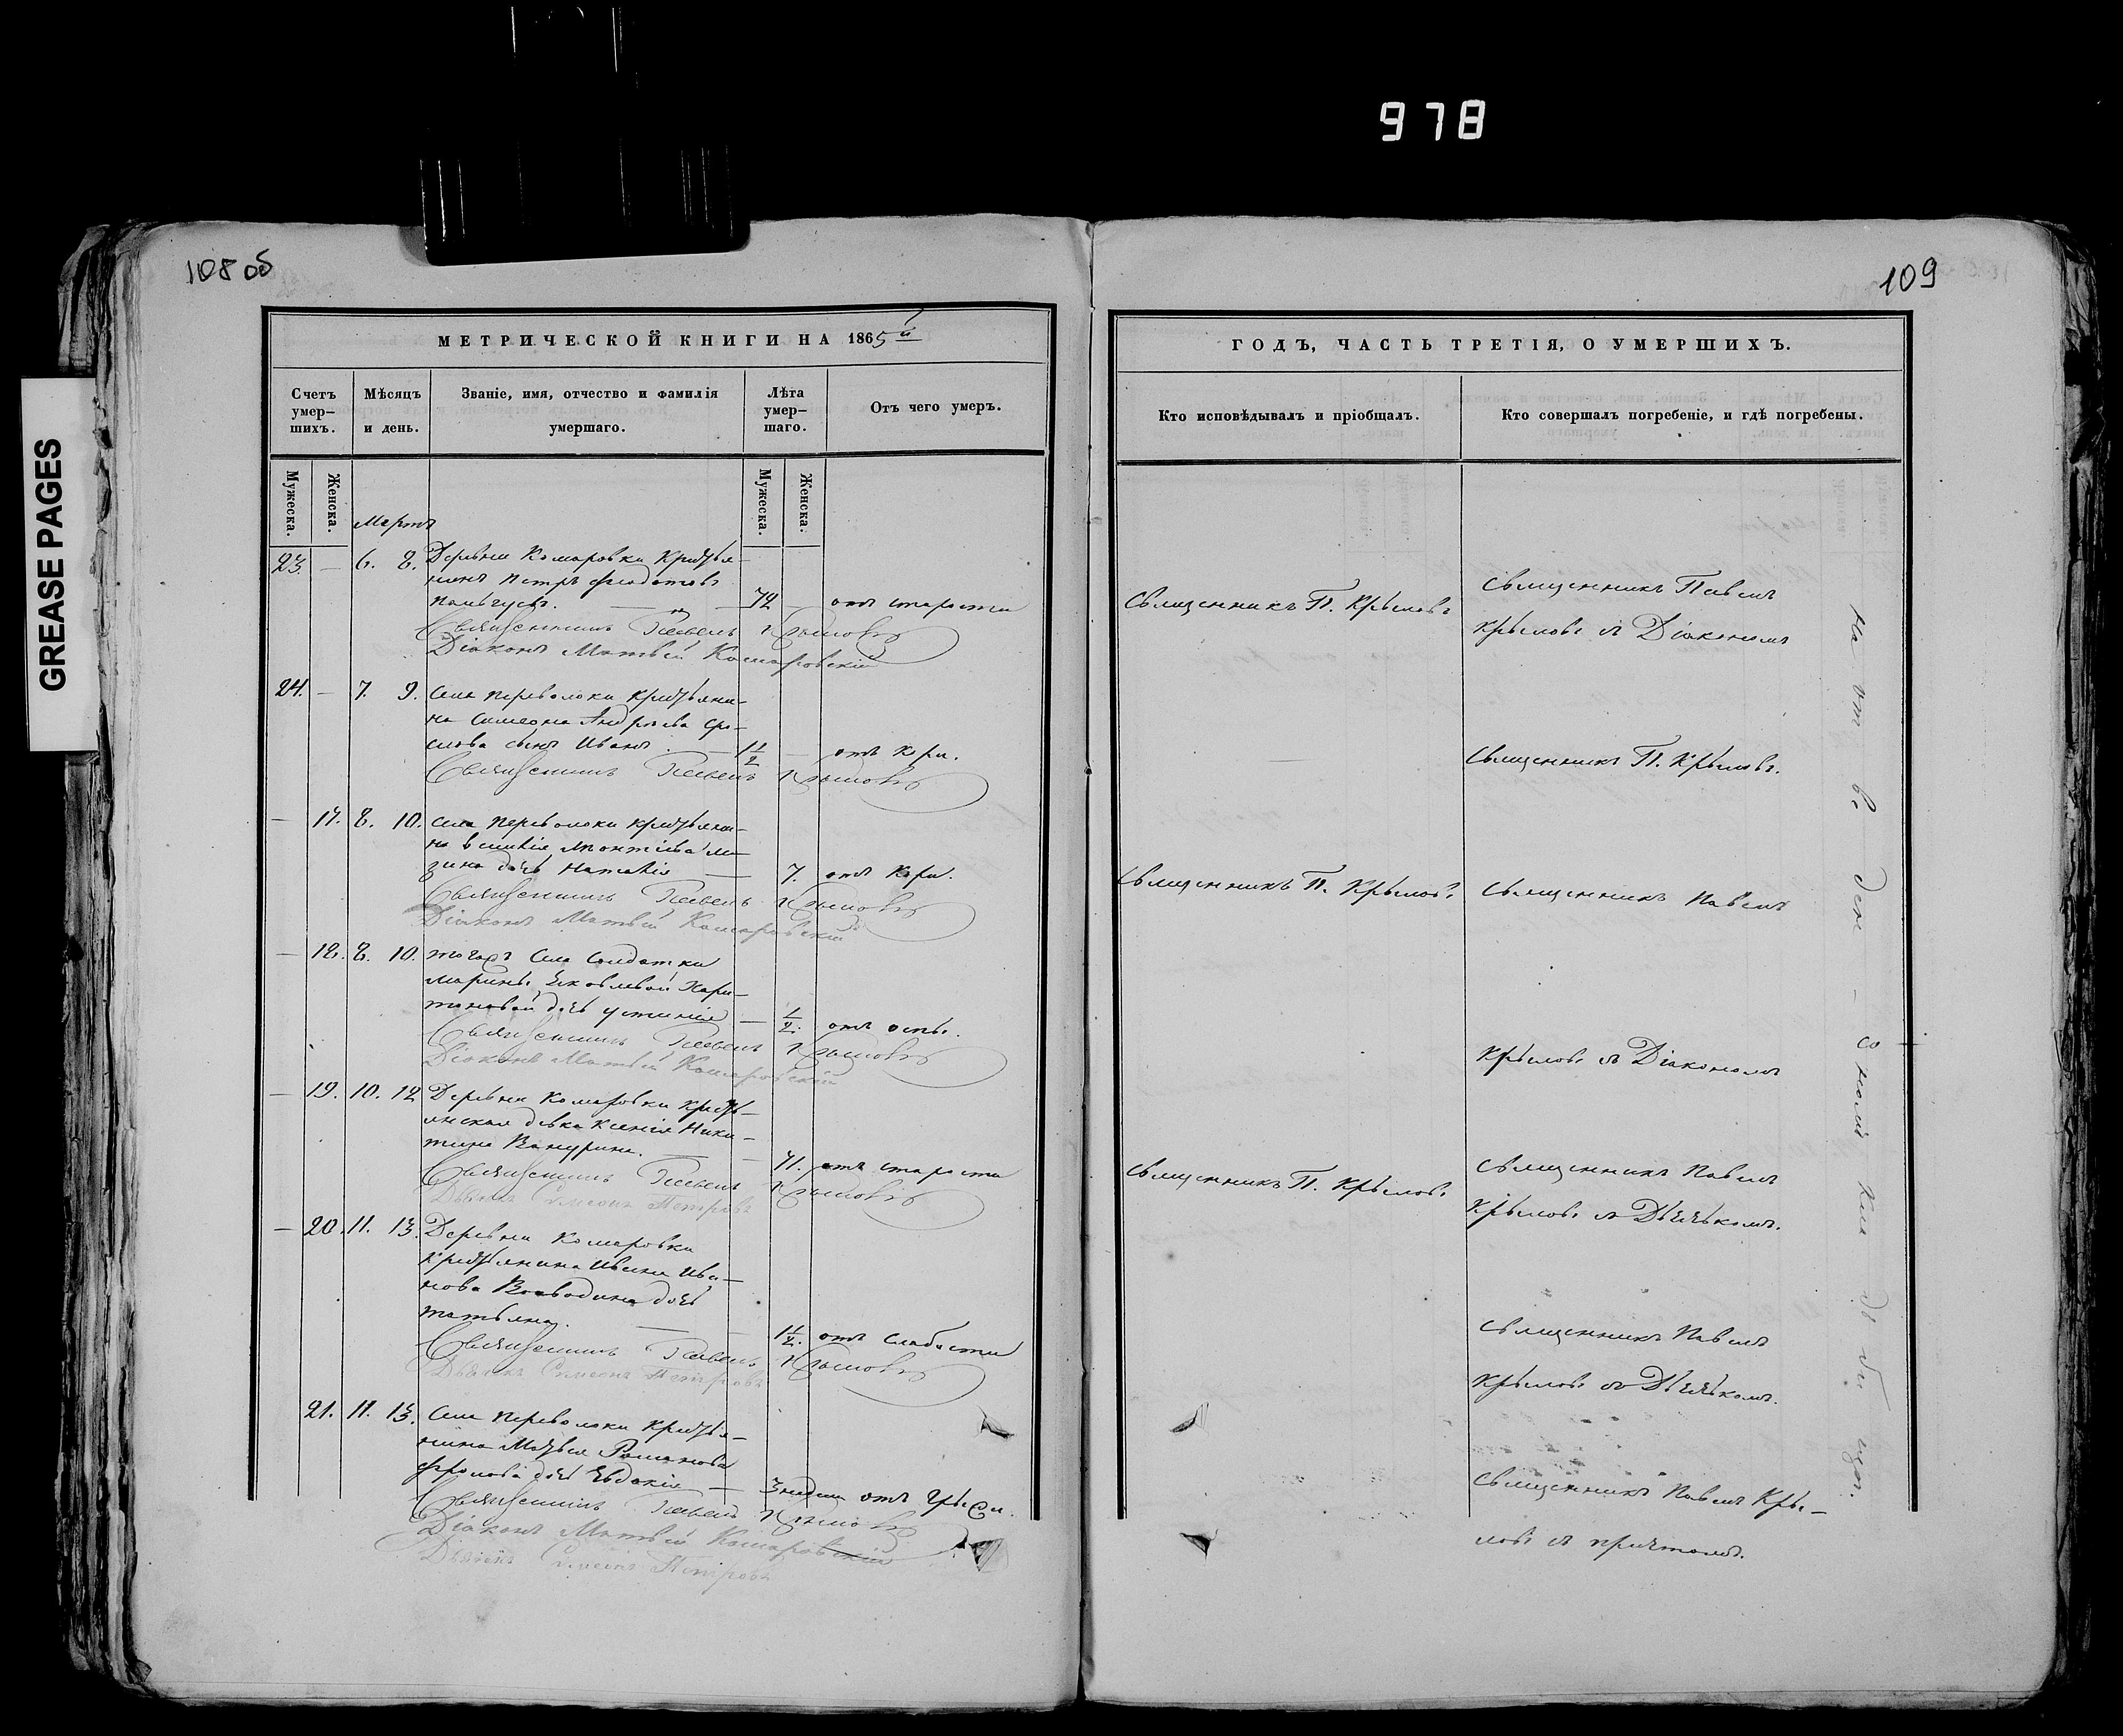 978
GREASE PAGES
108 об
МЕТРИЧЕСКОЙ КНИГИ НА 1865й
Счетъ умер–шихъ.
Мѣсяцъ и день.
Званіе, имя, отчество и фамилія умершаго.
Лѣта умер–шаго.
Отъ чего умеръ.
Мужеска.
Женска.
Мужеска.
Женска.
Мартъ
23. – 6. 8. Деревни Комаровки Крестья–
нинъ Петръ Феодотовъ
72 – отъ старости
Священникъ Павелъ Крыловъ
Діаконъ Матвей Комаровскій
24. – 7. 9. Села Переволоки Крестьяни–
на Симеона Андреева
сынъ Иванъ. – 1 1/2 – отъ Кори.
Священникъ Павелъ Крыловъ
– 17. 8. 10. Села Переволоки Крестьяни–
на
дочь Наталія – 7. отъ Кори.
Священникъ Павелъ Крыловъ
Діаконъ Матвей Комаровскій
– 18. 8. 10. тогожъ Села Солдатки
Марины Яковлевой Хари–
тоновой дочь Устинія – 1/2. отъ оспы.
Священникъ Павелъ Крыловъ
Діаконъ Матвей Комаровскій
– 19. 10. 12 Деревни Комаровки Кресть–
янская девка Ксенія Ники–
тина – 71. отъ старости
Священникъ Павелъ Крыловъ
Дьячекъ Симеонъ Петровъ
– 20. 11. 13. Деревни Комаровки
Крестьянина Ивана Ива–
нова Воеводина дочь
Татьяна. – 1 1/2. отъ Слабости
Священникъ Павелъ Крыловъ
Дьячекъ Симеонъ Петровъ
21. 11. 13. Села Переволоки Крестья–
нина Романова
Фролова дочь Евдокія – 3 недели отъ Грыжи.
Священникъ Павелъ Крыловъ
Діаконъ Матвей Комаровскій
Дьячекъ Симеонъ Петровъ
109
ГОДЪ, ЧАСТЬ ТРЕТІЯ, О УМЕРШИХЪ.
Кто исповѣдывалъ и пріобщалъ.
Кто совершалъ погребеніе, и гдѣ погребены.
Священникъ П. Крыловъ
Священникъ Павелъ
Крыловъ съ Діакономъ
–
Священникъ П. Крыловъ.
Священникъ П. Крыловъ
Священникъ Павелъ
Крыловъ съ Діакономъ
Священникъ П. Крыловъ
Священникъ Павелъ
Крыловъ съ Дьячькомъ.
Священникъ Павелъ
Крыловъ съ Дьячькомъ.
Священникъ Павелъ Кры–
ловъ съ причтомъ.